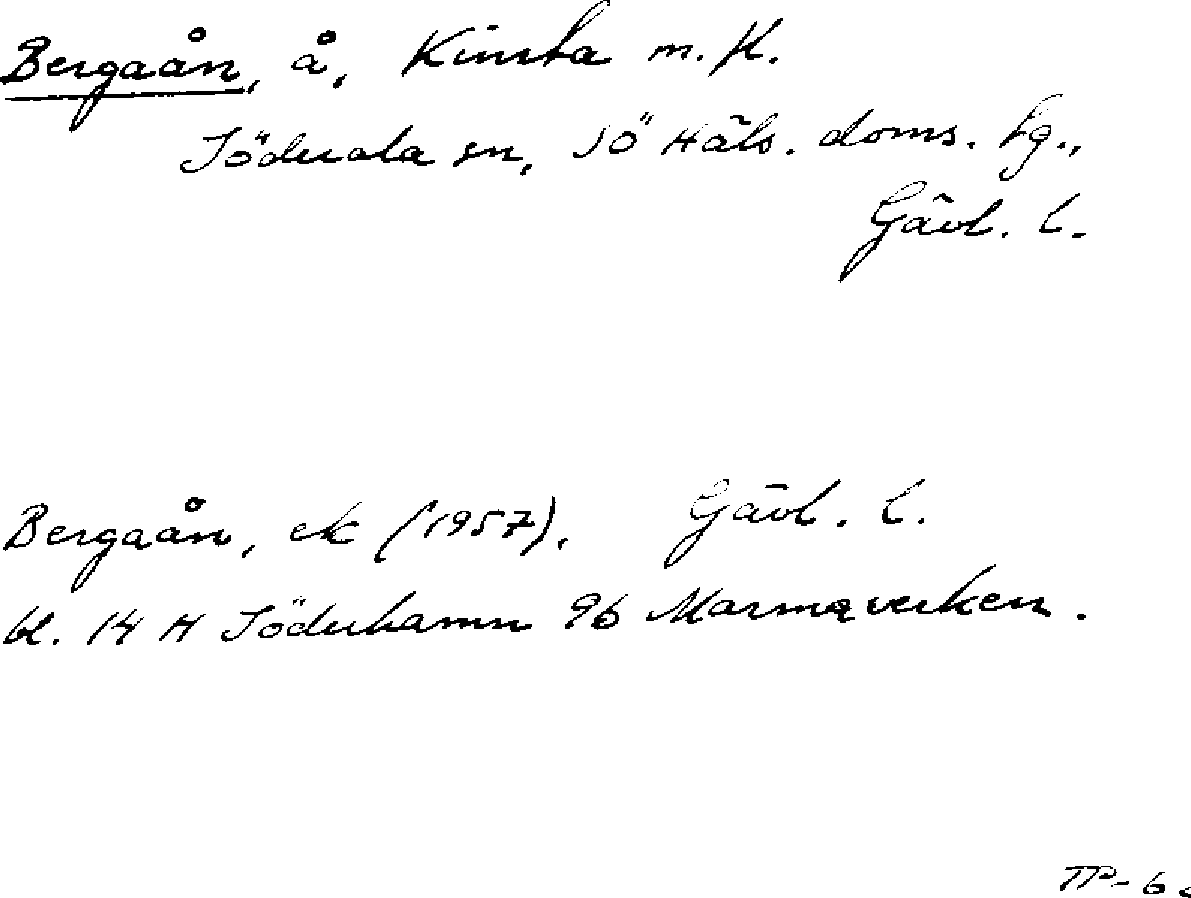 Bergaån, å, Kinsta m. fl.
Söderala sn, Sö Häls. doms. tg.,
Gävl. l.
Bergaån, ek (1957), Gävl. l.
bl. 14 H Söderhamn 9b Marmaverken.
TP-6